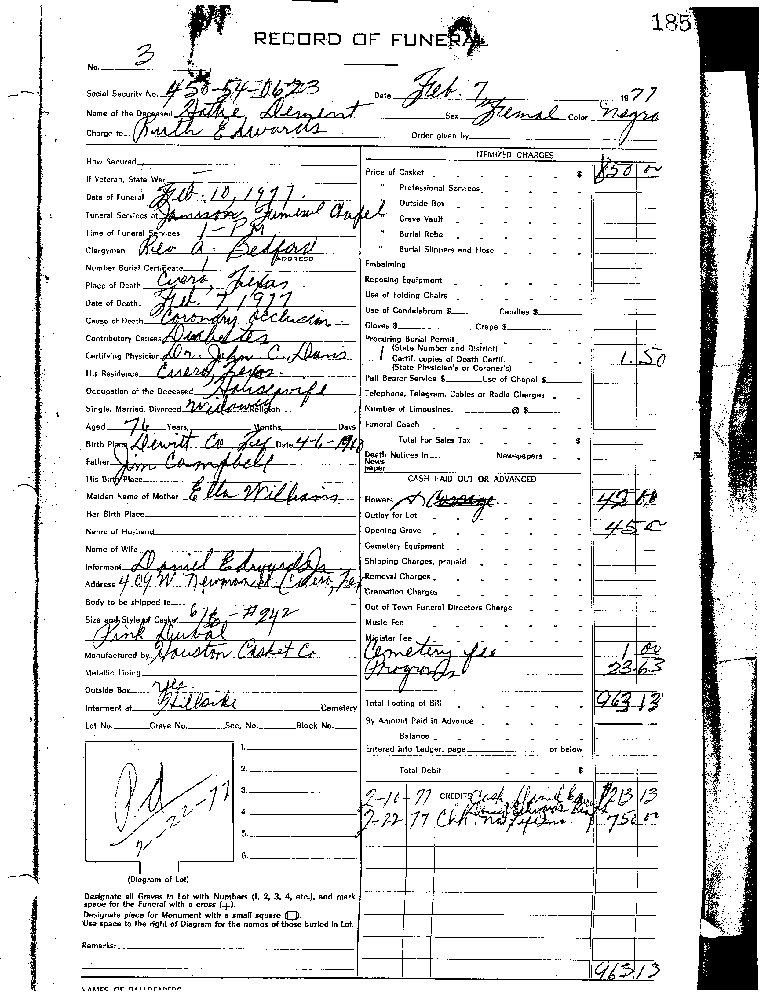 185
RECORD OF FUNERAL
No. 3
Social Security No. 450-54-0623 Date Feb. 7 1977
Name of the Deceased Hattie Dement Sex Femal Color Negro
Charge to Ruth Edwards Order given by
How Secured
If Veteran, State War
Date of Funeral Feb. 10, 1977
Funeral Services at Jamison Funeral Chapel
Time of Funeral Services 1-PM
Clergyman Rev A. Bedford
ADDRESS
Number Burial Certificate 1
Place of Death Cuero, Texas
Date of Death Feb. 7, 1977
Cause of Death Coronary Occlusion
Contributory Causes Diabetes
Certifying Physician Dr. John C. Davis
His Residence Cuero, Texas
Occupation of the Deceased Housewife
Single, Married, Divorced Widowed Religion
Aged 76 Years, Months, Days
Birth Place Dewitt Co Tex Date 4-6-
Father Jim Campbell
His Birth Place
Maiden Name of Mother Ella Williams
Her Birth Place
Name of Husband
Name of Wife
Informant Daniel Edwards Jr
Address 409 W. Cuero, Tex
Body to be shipped to
Size and Style of Casket 6/6 - #242
Pink
Manufactured by Houston Casket Co
Metallic Lining
Outside Box yes
Interment at Hillside Cemetery
Lot No. Grave No. Sec. No. Block No.
1.
2.
3.
4.
5.
6.
Pd
2-22-77
(Diagram of Lot)
Designate all Graves in Lot with Numbers (1, 2, 3, 4, etc.), and mark
space for the Funeral with a cross (+).
Designate place for Monument with a small square (□).
Use space to the right of Diagram for the names of those buried in Lot.
Remarks:
ITEMIZED CHARGES
Price of Casket $ 850 00
" Professional Services
" Outside Box
" Grave Vault
" Burial Robe
" Burial Slippers and Hose
Embalming
Reposing Equipment
Use of Folding Chairs
Use of Candelabrum $ Candles $
Gloves $ Crepe $
Procuring Burial Permit
(State Number and District)
1 Certif. copies of Death Certif. 1.50
(State Physician's or Coroner's)
Pall Bearer Service $ Use of Chapel $
Telephone, Telegram, Cables or Radio Charges
Number of Limousines @ $
Funeral Coach
Total For Sales Tax $
Death Notices in Newspapers
News
paper
CASH PAID OUT OR ADVANCED
Flowers 42 00
Outlay for Lot
Opening Grave 45 00
Cemetery Equipment
Shipping Charges, prepaid
Removal Charges
Cremation Charges
Out of Town Funeral Directors Charge
Music Fee
Minister Fee
Cemetery fee 1 00
Programs 23.63
Total Footing of Bill 963 13
By Amount Paid in Advance
Balance
Entered into Ledger, page or below
Total Debit $
2-10-77 CREDITS Cash $213 13
2-22 77 Ck 750 00
963 13
NAMES OF PALLBEARERS